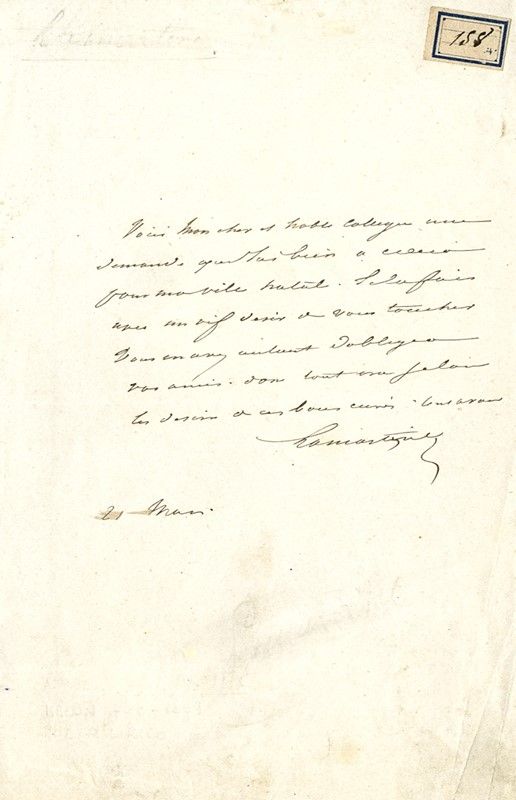 Lamartine
158
Voici mon cher et noble collègue une
demande que j'ai bien à coeur
pour ma ville natale. Je la fais
avec un vif désir de vous toucher
Vous en avez autant d'obliger
vos amis. donc tout ira selon
les désirs de ces bons curés.
Lamartine
21 Mars.